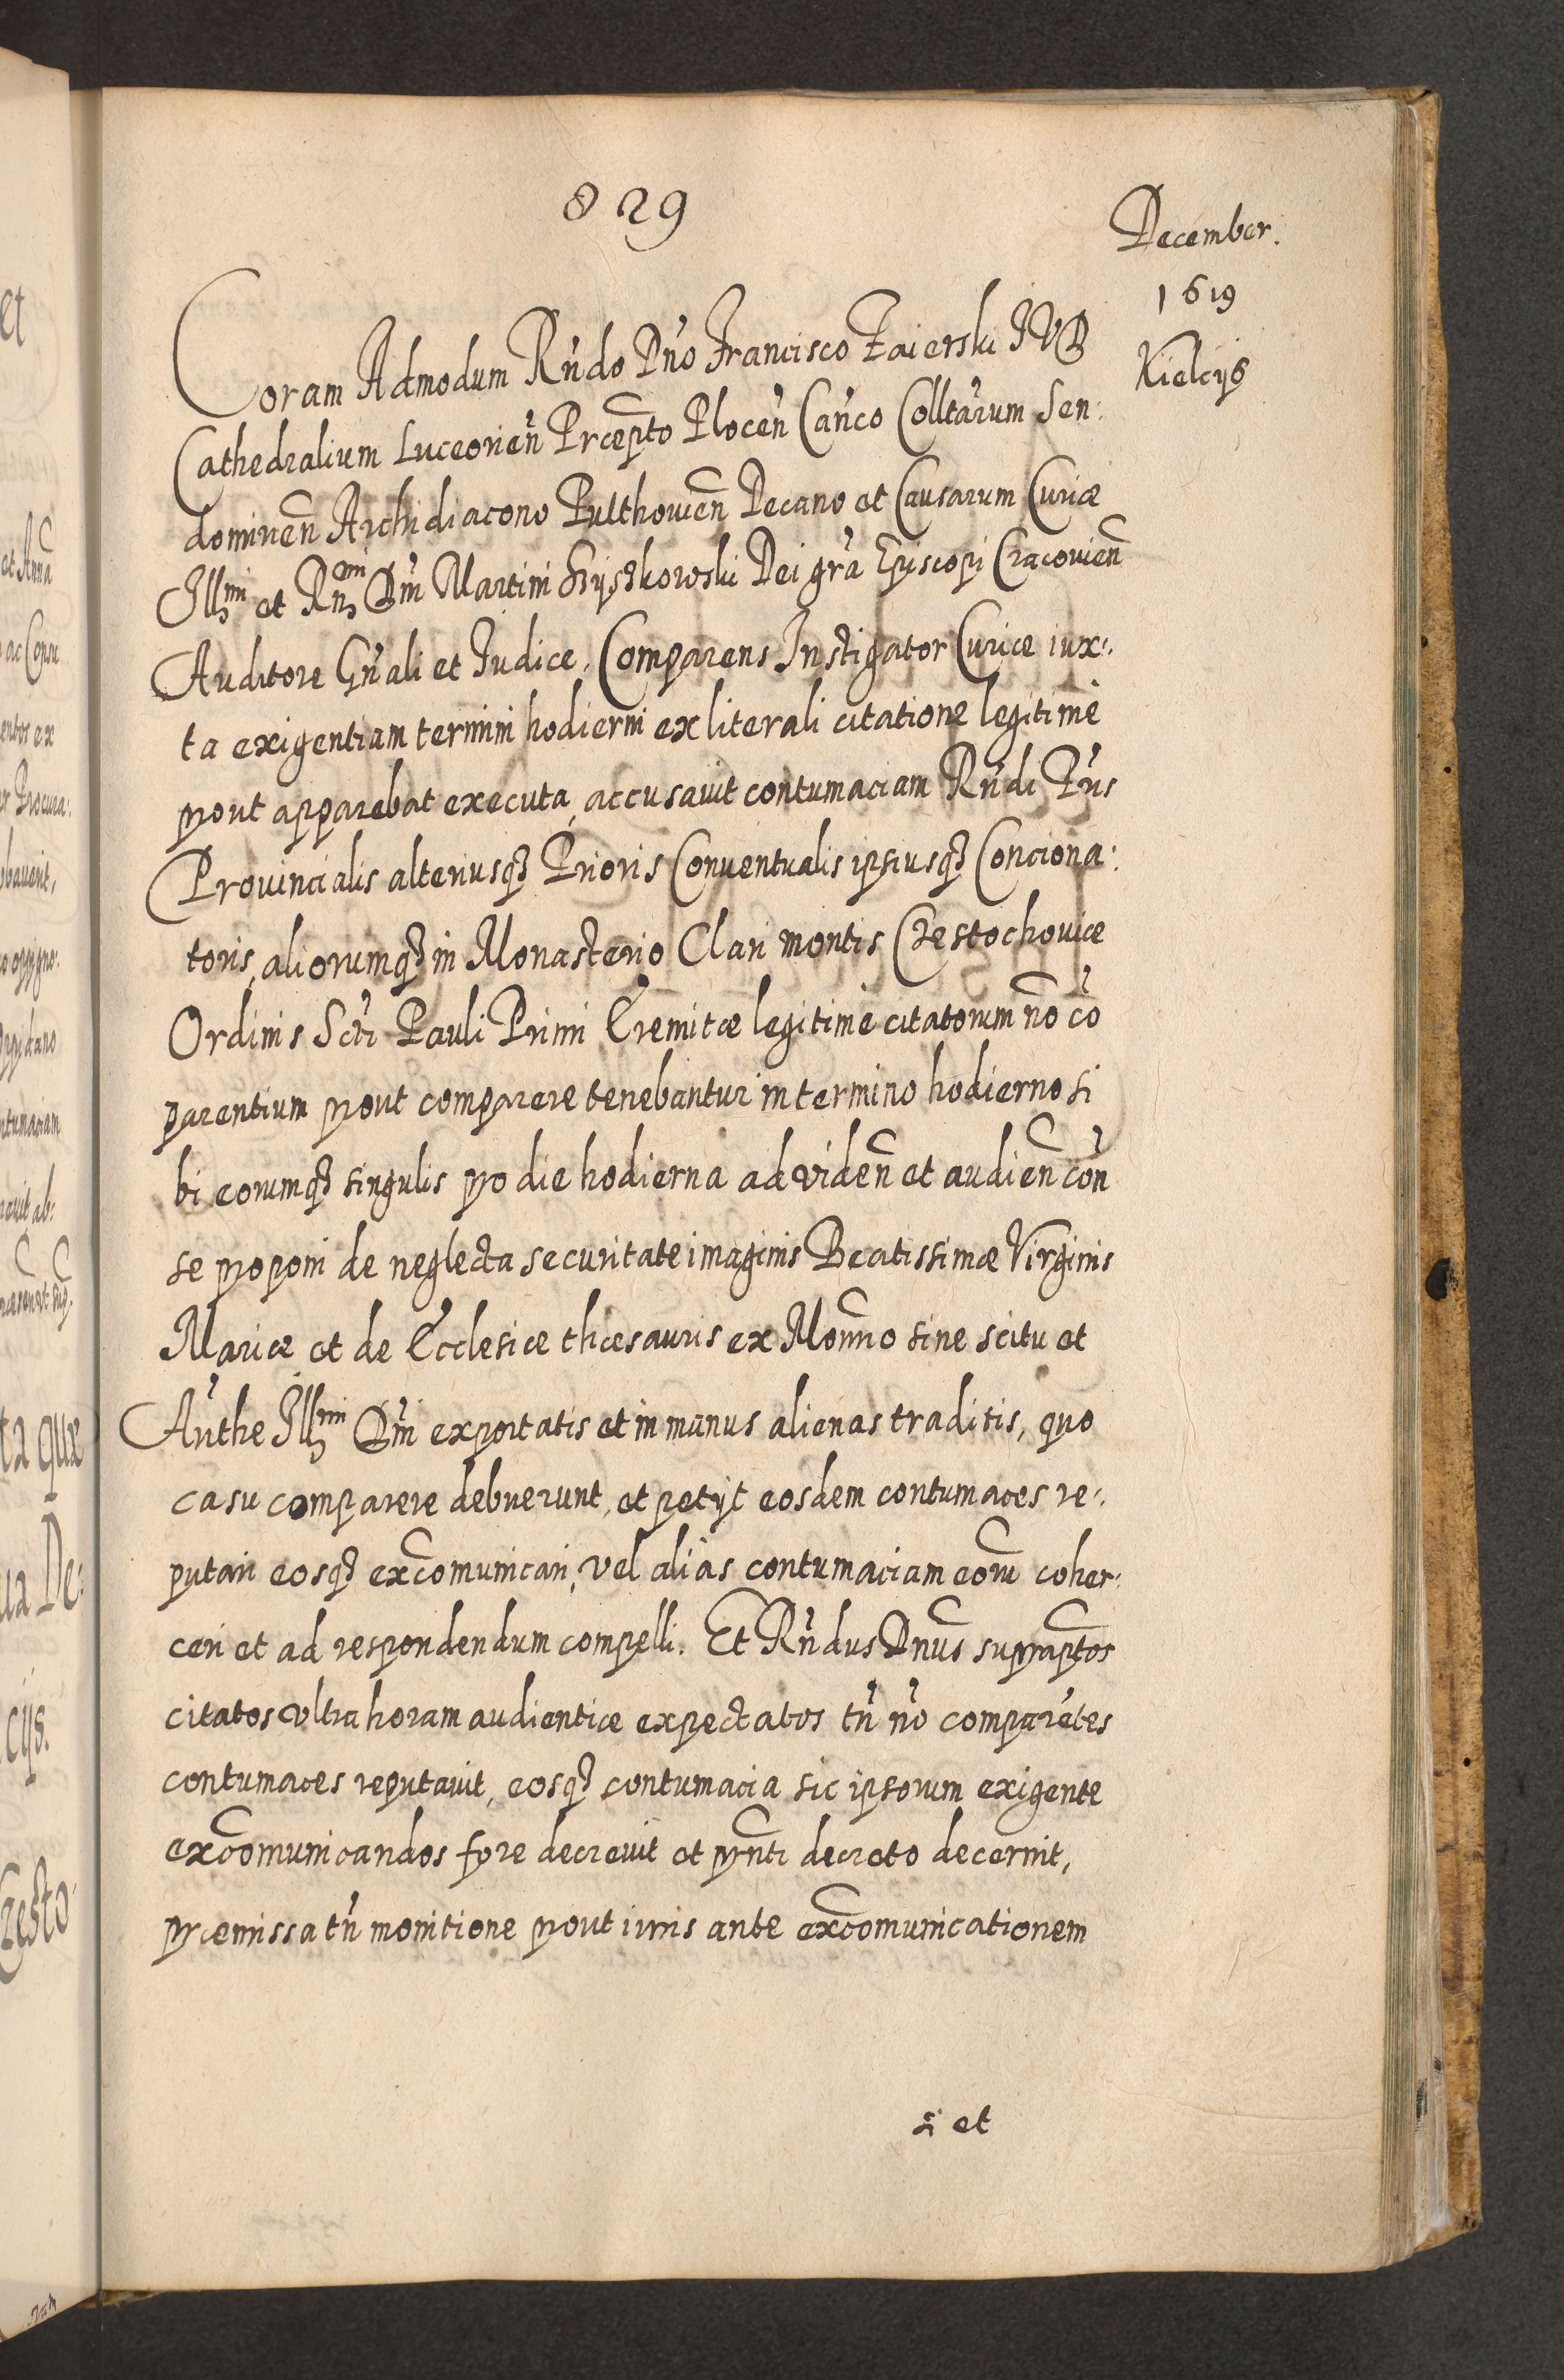 829
December.
1619
Kielcijs
Coram Admodum Rńdo Dńo Francisco Zaierski IVD
Cathedralium Luceorień Præpto Ploceń Cańco Colltárum Sen:
domirien̄ Archidiacono Pulthouien̄ Decano et Causarum Curiæ
Illmi et Rńemi Dńi Martini Szyszkowski Dei gŕa Episcopi Cracouien̄
Auditore Gńali et Iudice. Comparens Instigator Curiæ iux:
ta exigentiam termini hodierni ex literali citatione legitimè
prout apparebat executa, accusauit contumaciam Rńdi Pŕis
Prouincialis alteriusq3 Prioris Conuentualis ipsiusq3 Conciona:
toris, aliorumq3 in Monasterio Clari montis Czestochouiæ
Ordinis Scti Pauli Primi Eremitæ legitimè citatorum nō cō
parentium prout comparere tenebantur in termino hodierno si
bi eorumq3 singulis pro die hodierna ad viden̄ et audien̄ con̄
se proponi de neglecta securitate imaginis Beatissimæ Virginis
Mariæ et de Ecclesiæ thæsauris ex Monn̄o sine scitu et
Aúthe Illmi Dńi exportatis et in manus alienas traditis, quo
casu comparere debuerunt, et petijt eosdem contumaces re:
putari eosq3 excōmunicari, vel aliàs contumaciam eorū coher:
ceri et ad respondendum compelli. Et Rńdus Dnūs supraptōs
citatos vltra horam audientiæ expectatos tń nō comparētes
contumaces reputauit, eosq3 contumacia sic ipsorum exigente
excōmunicandos fore decreuit et prn̄ti decreto decernit,
præmissa tń monitione prout iuris ante excōmunicationem
si et